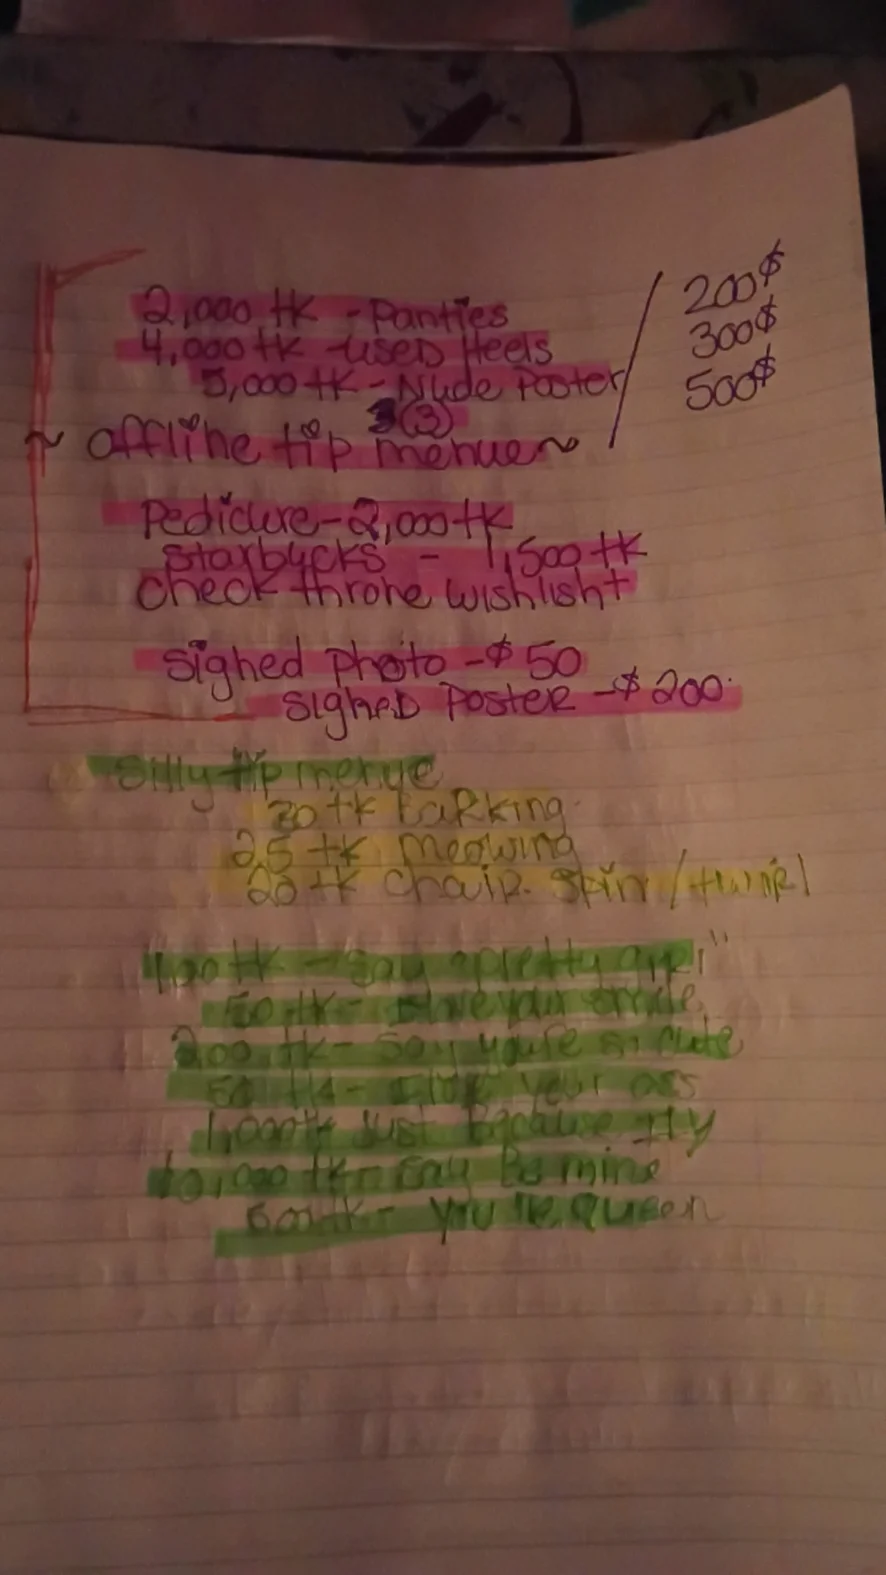 2,000 tk - Panties / 200$
4,000 tk - used Heels 300$
5,000 tk - Nude Poster 500$
(3)
~ offline tip menue ~
Pedicure - 2,000 tk
starbucks - 1,500 tk
check throne wishlisht
signed photo - $ 50
signed Poster - $ 200
silly tip menue
20 tk barking
25 tk meowing
20 tk chair spin / twirl
tk - say pretty girl"
50 tk - love your smile
200 tk - say you're so cute
50 tk - your ass
1,000 tk just because ily
10,000 tk - say Be mine
tk - Queen